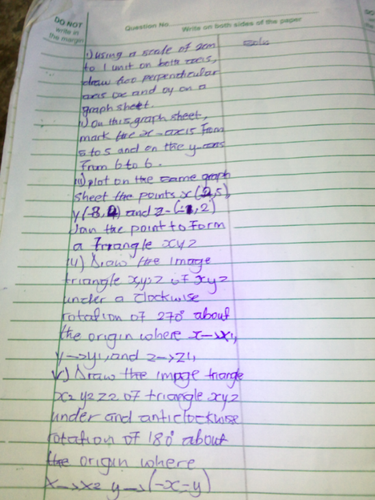 DO NOT
Write in
the margin
Question No
Write on both sides of the paper
i) Using a scale of 2cm
to 1 unit on both axes,
draw two perpendicular
axis ox and oy on a
graph sheet.
ii) On this graph sheet,
mark the x-axis from
5 to 5 and on the y-axis
From 6 to 6.
iii) plot on the same graph
sheet the points x(2,5),
y(-3,4) and z-(-1,2)
Join the point to Form
a Triangle xyz
iv) Draw the image
triangle x,y,z of xyz
under a clockwise
rotation of 270° about
the origin where x→x1,
y→y1, and z→z1,
v) Draw the image triangle
x2 y2 z2 of triangle xyz
under and anticlockwise
rotation of 180° about
the origin where
x→x2 y→(-x-y)